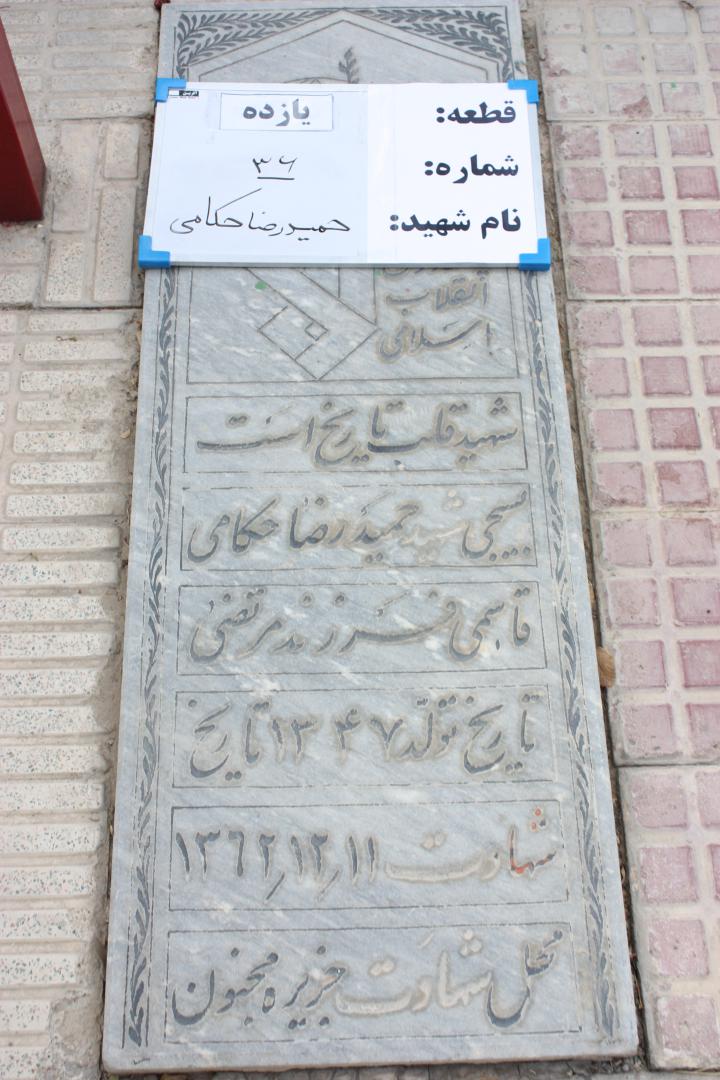 قطعه: یازده
شماره: ۳۶
نام شهید: حمیدرضا حکامی
انقلاب
اسلامی
شهید قلب تاریخ است
بسیجی شهید حمیدرضا حکامی
قاسمی فرزند مرتضی
تاریخ تولد ۱۳۴۷ تاریخ
شهادت ۱۳۶۲٫۱۲٫۱۱
محل شهادت جزیره مجنون